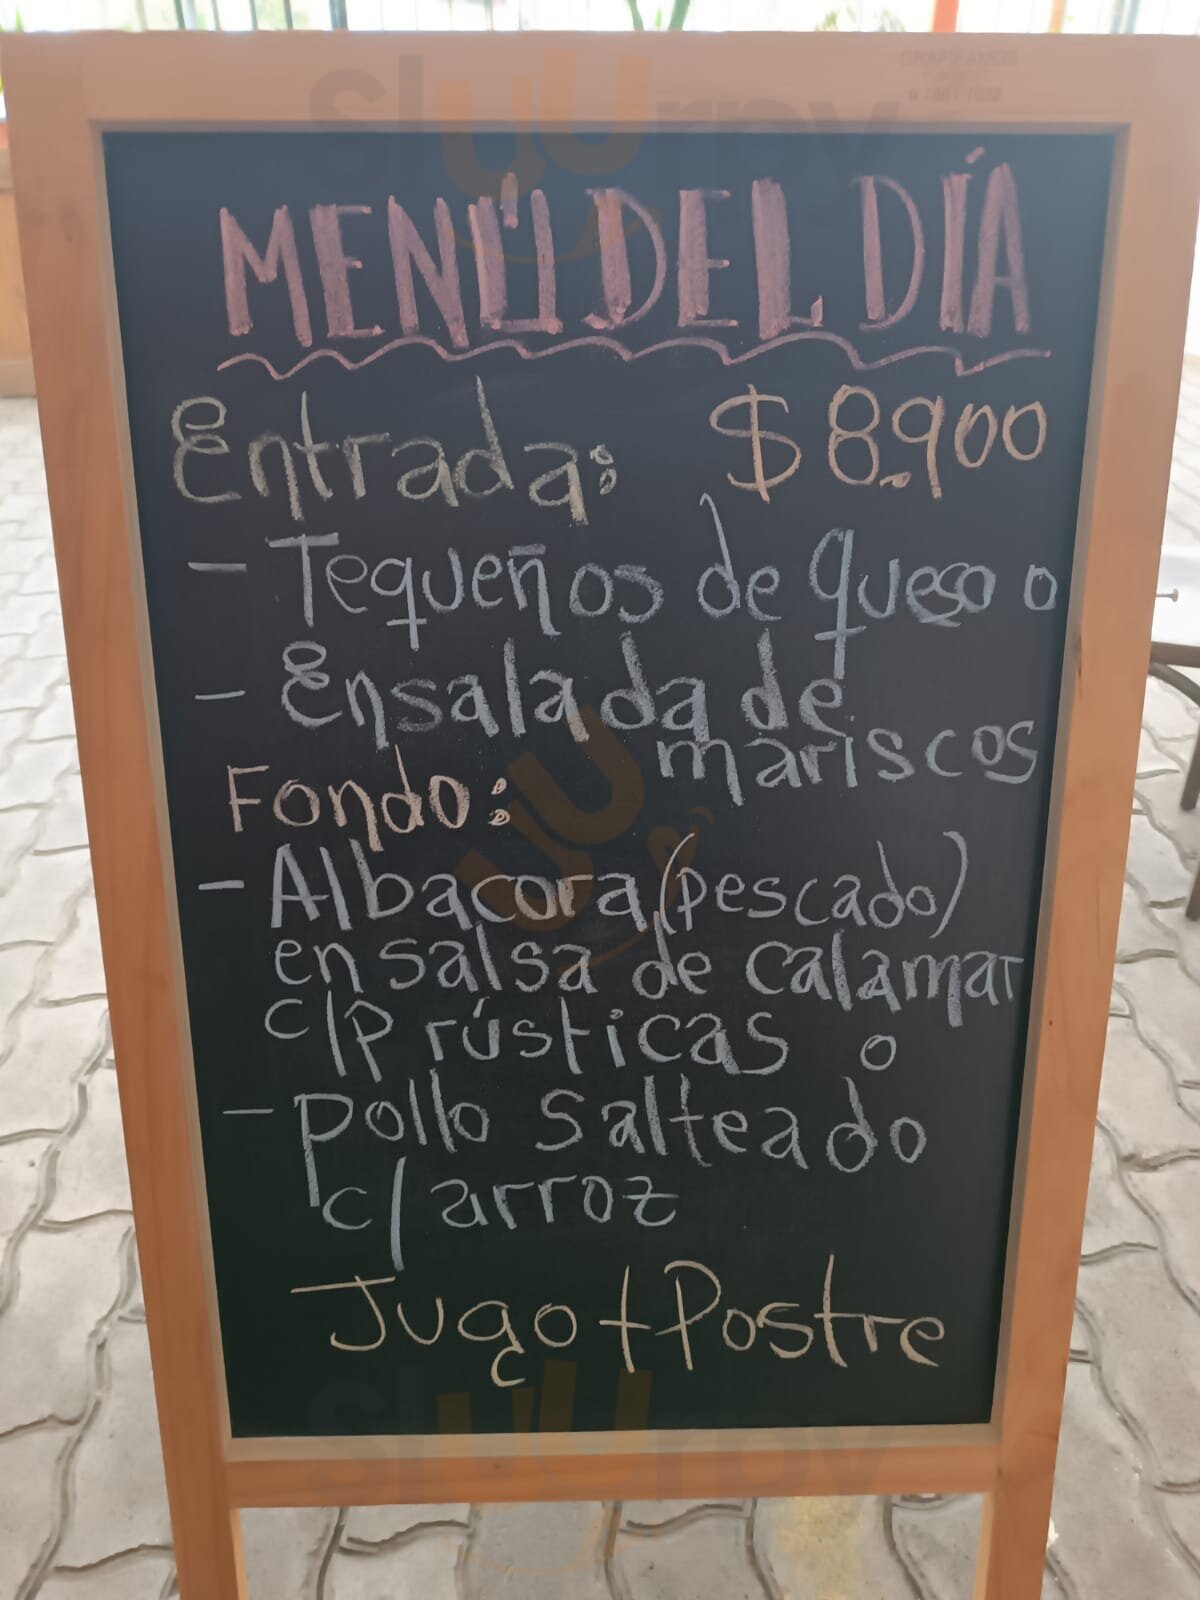 sluurpy
MENÚ DEL DÍA
Entrada: $8.900
- Tequeños de queso o
- Ensalada de
mariscos
Fondo:
- Albacora (pescado)
en salsa de calamar
c/p rústicas o
- pollo salteado
c/arroz
Jugo + Postre
sluurpy